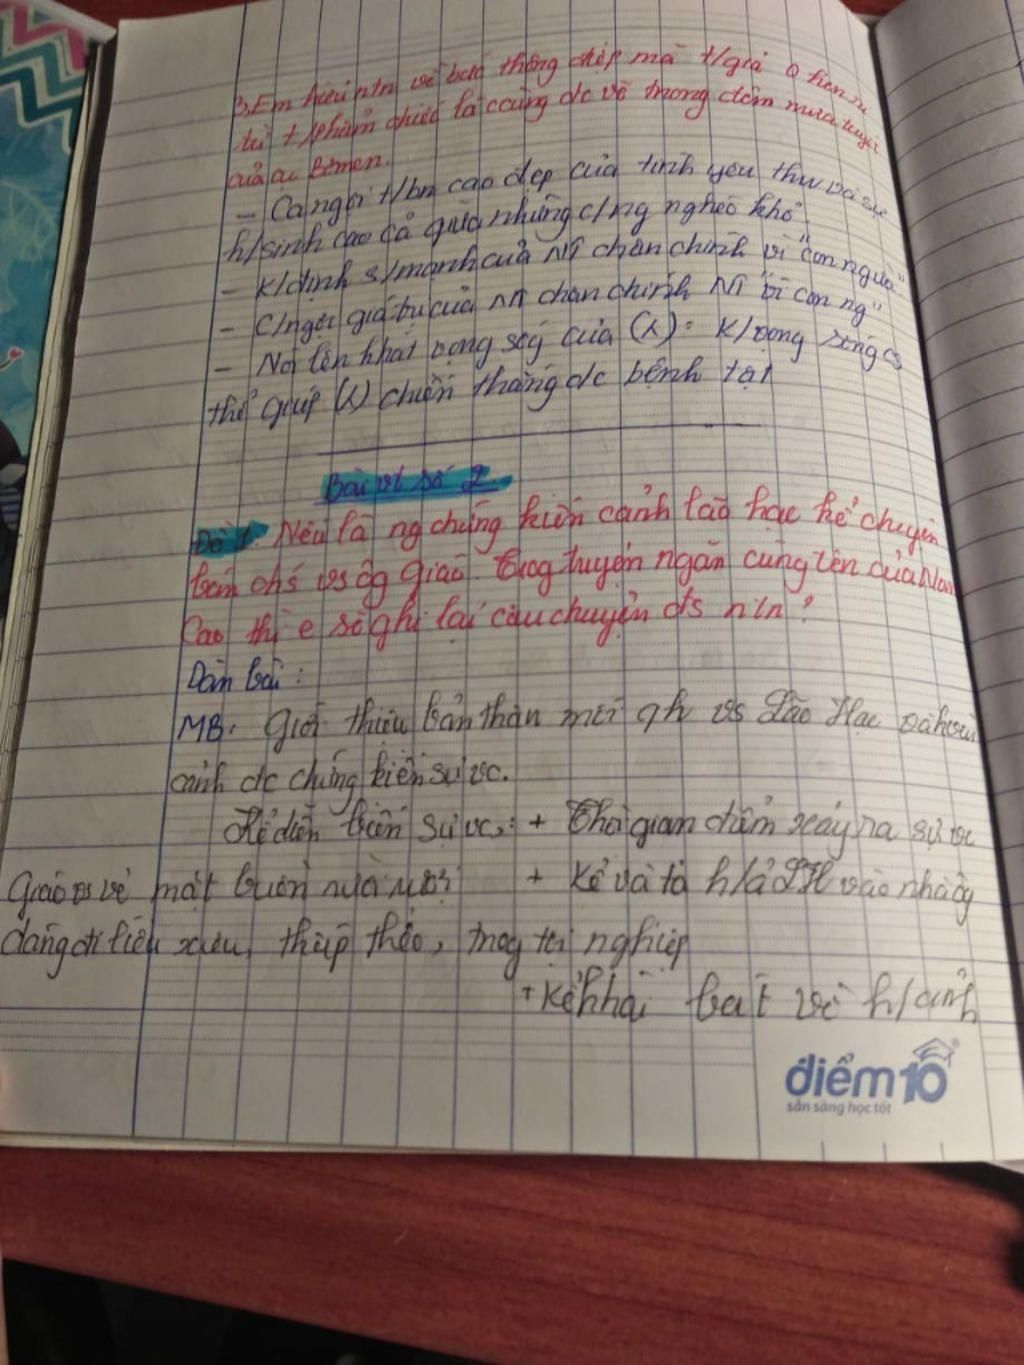 3, Em hiểu ntn về bức thông điệp mà t/giả O hen ri
từ t/phẩm chiếc lá cuối cùng đc vẽ trong đêm mưa tuyết
của cụ Bơmen.
- Ca ngợi t/bn cao đẹp của tình yêu thw và sự
h/sinh cao cả giữa những c/ng nghèo khổ.
- K/định s/mạnh của NT chân chính vì "con người".
- C/ngợi giá trị của NT chân chính NT "vì con ng"
- Nói lên khát vọng của (X): K/vọng sống có
thể giúp (X) chiến thắng đc bệnh tật
Bài vt số 2.
Đề 1. Nếu là ng chứng kiến cảnh lão hạc kể chuyện
bán chó vs ôg giáo trog truyện ngắn cùng tên của Nam
Cao thì e sẽ ghi lại câu chuyện đó ntn?
Dàn bài:
MB: Giới thiệu bản thân mối qh vs Lão Hạc và hoàn
cảnh đc chứng kiến sự vc.
Kể diễn biến sự vc: + Thời gian điểm xảy ra sự vc
+ Kể và tả h/ả LH vào nhà ôg
Giáo vs vẻ mặt buồn
dáng đi liêu xiêu, thấp thỏm, trog tội nghiệp
+ Kể khái quát về h/cảnh
điểm10
sẵn sàng học tốt